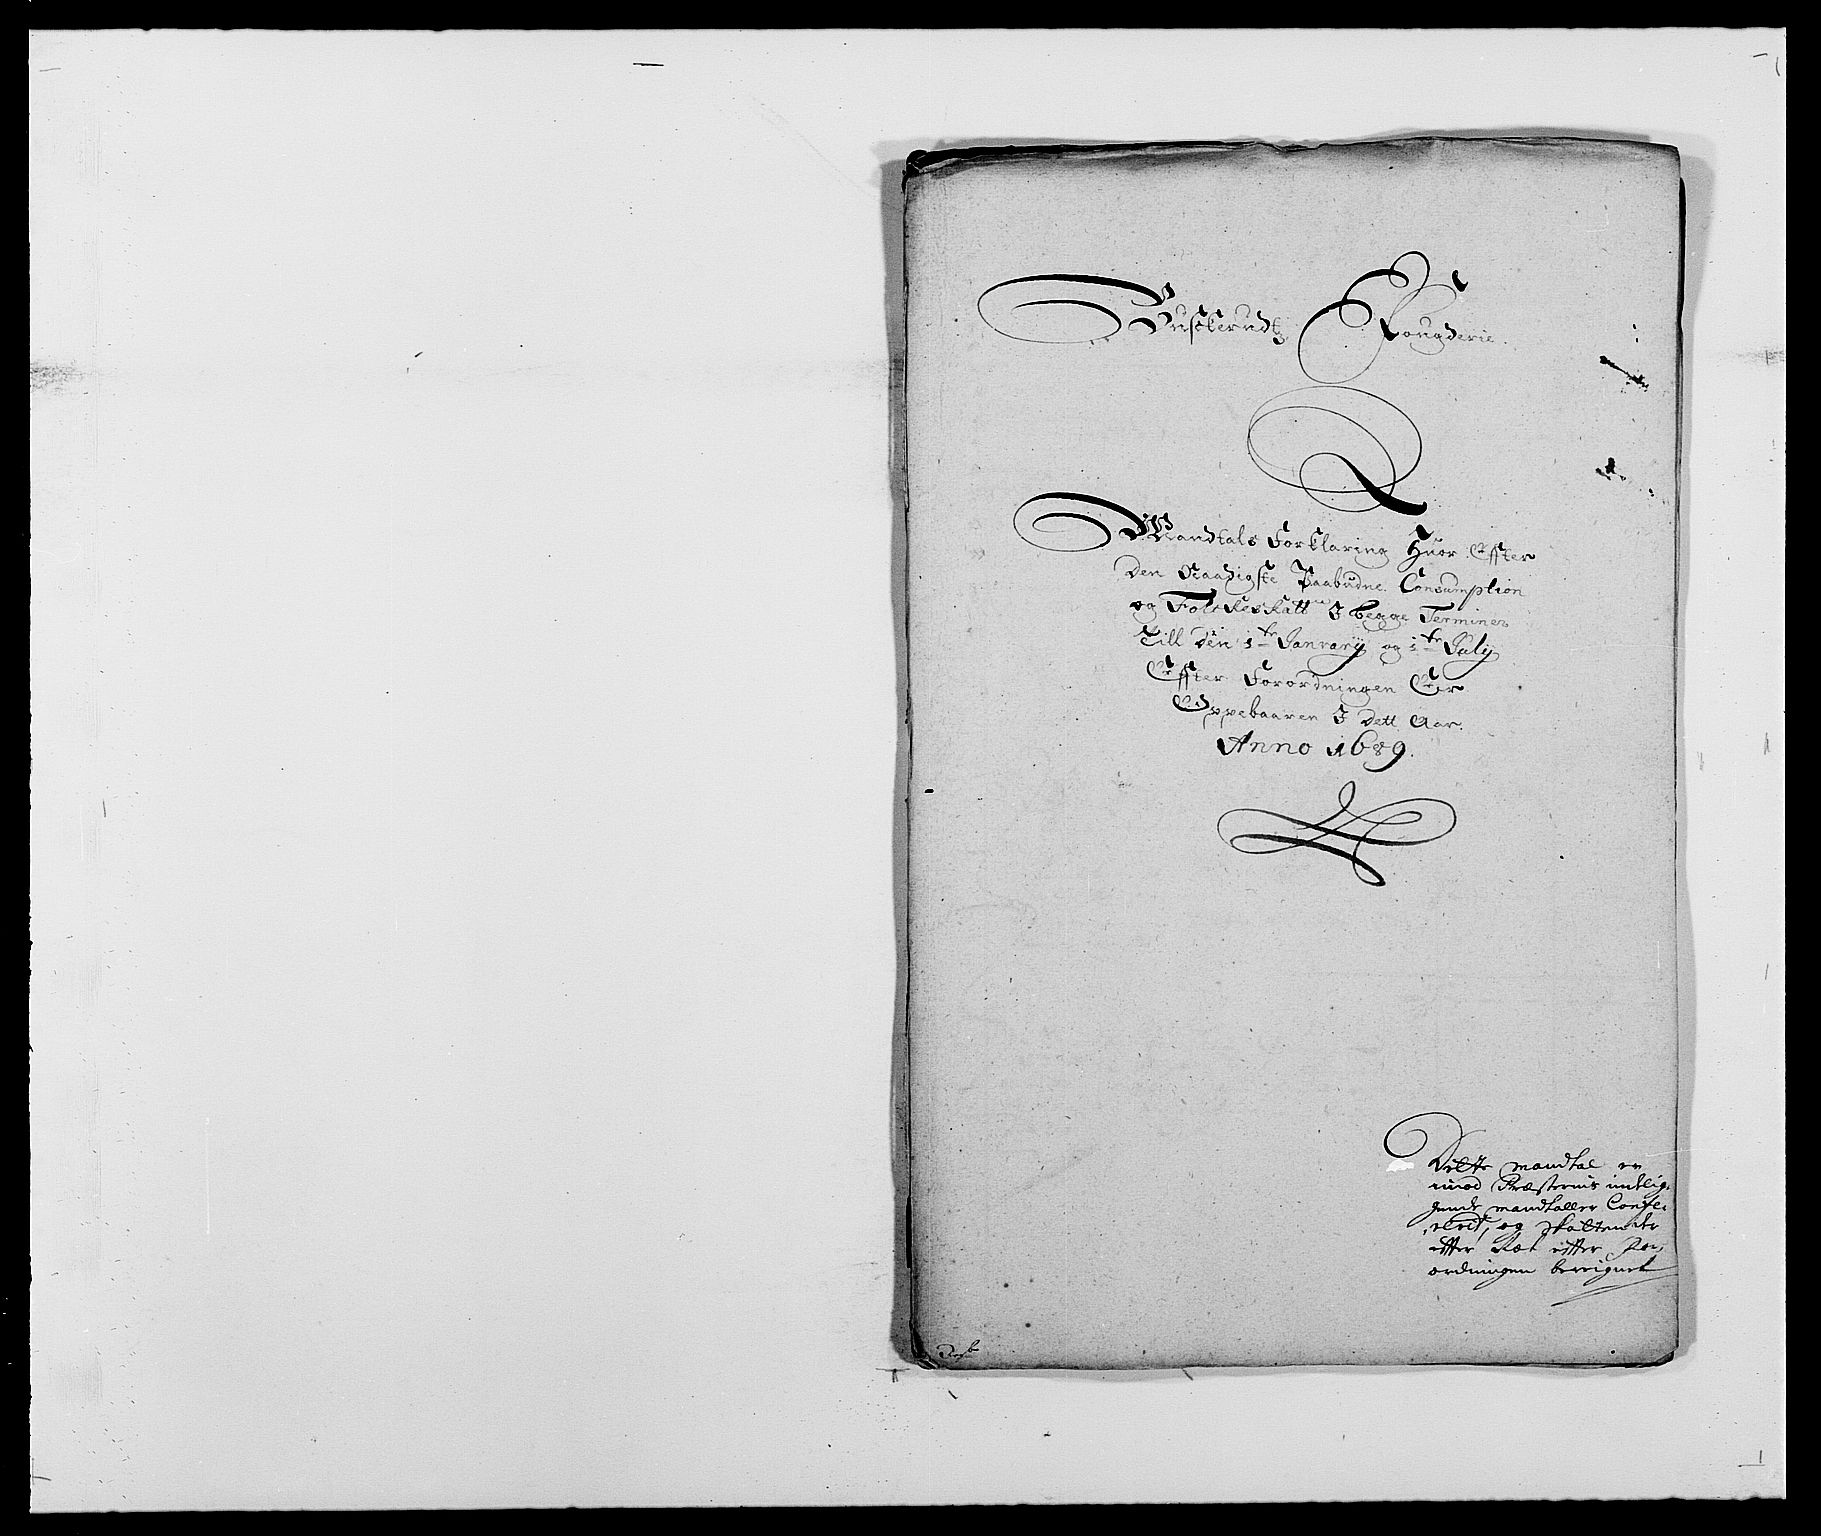 Buskeruds Fougderie.
Mandtals Forklaring Huor Effter
den Naadigste Paabudne Consumption
og Folckeskatt I begge Terminer
Till den 1te January og 1te July
Effter Forordningen Er
Oppebaaren I dett Aar.
Anno 1689.
Dette mandtal er
imod Præsternis indlig-
gende mandtaller Confe-
rerit, og skatten der
effter Ret effter For-
ordningen bereignet